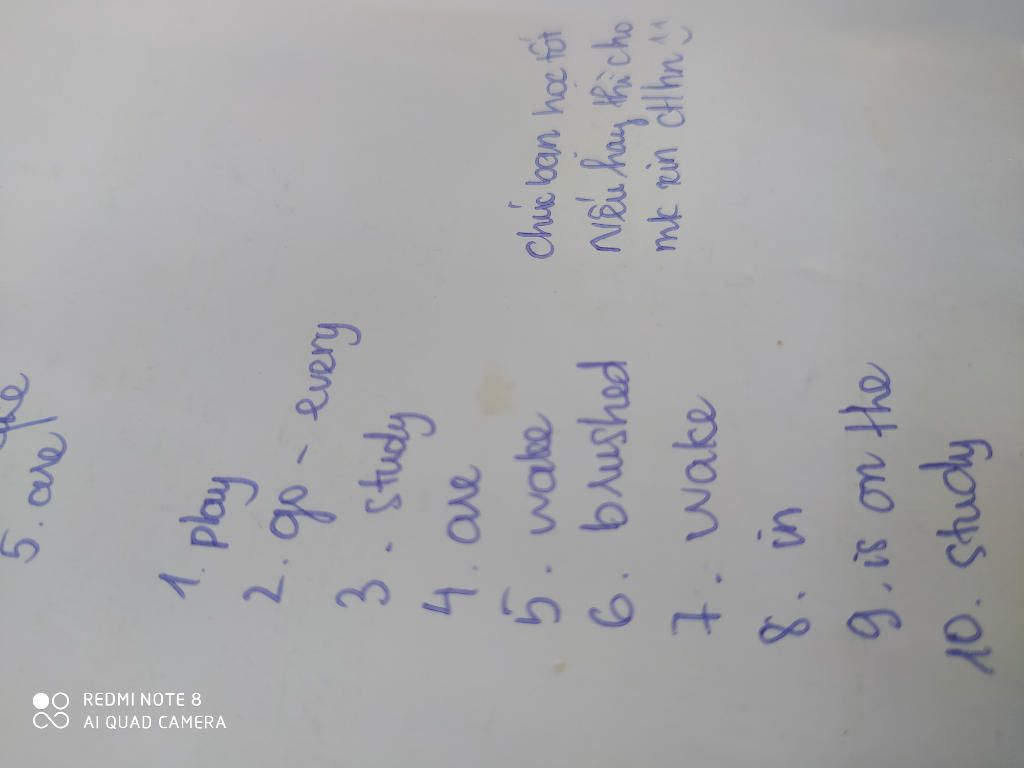 5. are
1. play
2. go - every
3. study
4. are
5. wake
6. brushed
7. wake
8. in
9. is on the
10. study
Chúc bạn học tốt
Nếu hay thì cho
mk xin ctlhn
REDMI NOTE 8
AI QUAD CAMERA